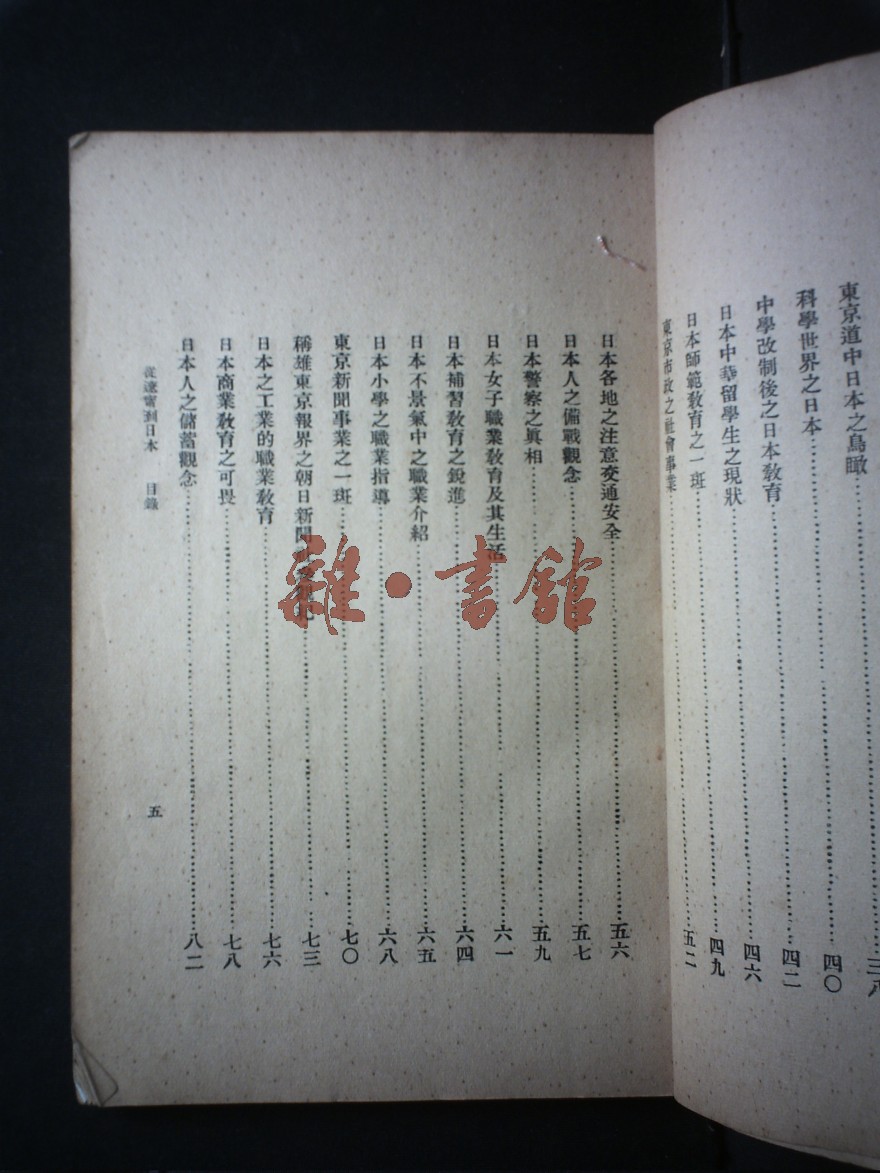 三八
東京道中日本之鳥瞰……四〇
科學世界之日本……四二
中學改制後之日本教育……四六
日本中華留學生之現狀……四九
日本師範教育之一班……五二
東京市政之社會事業……
日本各地之注意交通安全……五六
日本人之備戰觀念……五七
日本警察之眞相……五九
日本女子職業教育及其生活……六一
日本補習教育之銳進……六四
日本不景氣中之職業介紹……六五
日本小學之職業指導……六八
東京新聞事業之一班……七〇
稱雄東京報界之朝日新聞……七三
日本之工業的職業教育……七六
日本商業教育之可畏……七八
日本人之儲蓄觀念……八二
從遼寧到日本 目錄
五
雜·書館